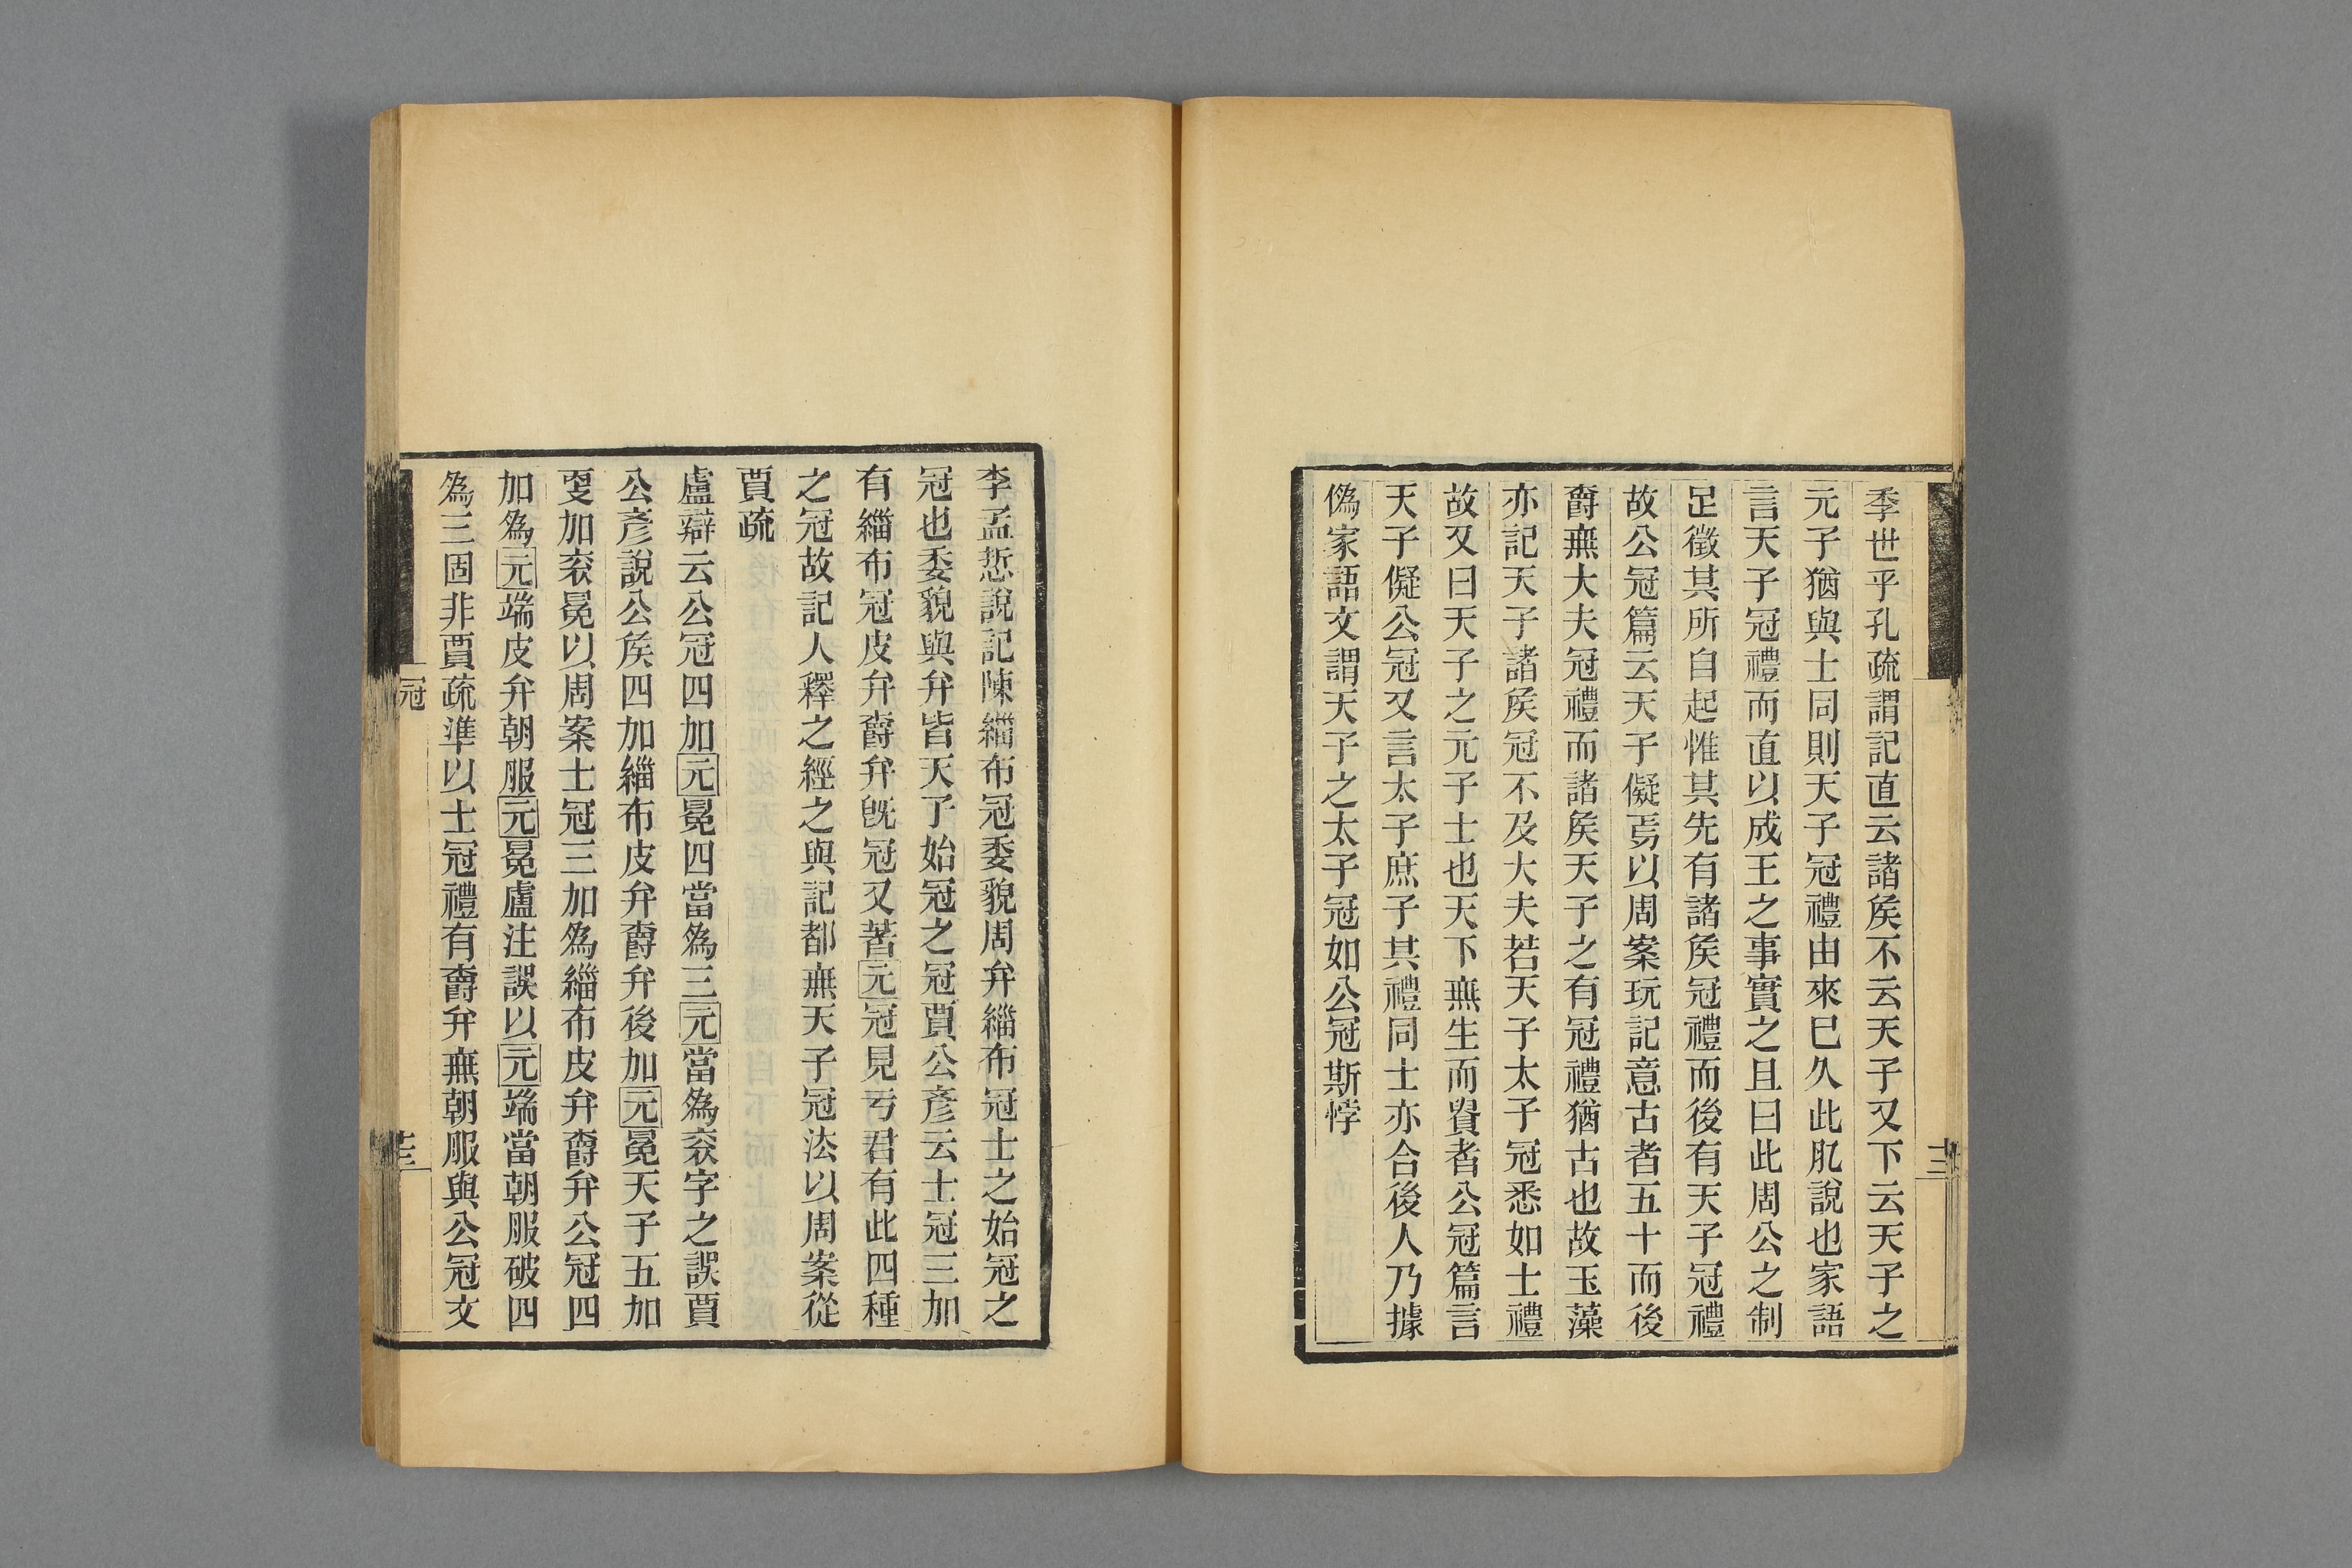 季世乎孔疏謂記直云諸矦不云天子又下云天子之
元子猶與士同則天子冠禮由來已久此肊說也家語
言天子冠禮而直以成王之事實之且曰此周公之制
足徵其所自起惟其先有諸矦冠禮而後有天子冠禮
故公冠篇云天子儗焉以周案玩記意古者五十而後
爵無大夫冠禮而諸矦天子之有冠禮猶古也故玉藻
亦記天子諸矦冠不及大夫若天子太子冠悉如士禮
故又曰天子之元子士也天下無生而貴者公冠篇言
天子儗公冠又言太子庶子其禮同士亦合後人乃據
僞家語文謂天子之太子冠如公冠斯悖
十三
李孟悊說記陳緇布冠委貌周弁緇布冠士之始冠之
冠也委貌與弁皆天子始冠之冠賈公彥云士冠三加
有緇布冠皮弁爵弁旣冠又著元冠見于君有此四種
之冠故記人釋之經之與記都無天子冠法以周案從
賈疏
盧辯云公冠四加元冕四當爲三元當爲袞字之誤賈
公彥說公矦四加緇布皮弁爵弁後加元冕天子五加
叓加袞冕以周案士冠三加爲緇布皮弁爵弁公冠四
加爲元端皮弁朝服元冕盧注誤以元端當朝服破四
爲三固非賈疏準以士冠禮有爵弁無朝服與公冠文
冠